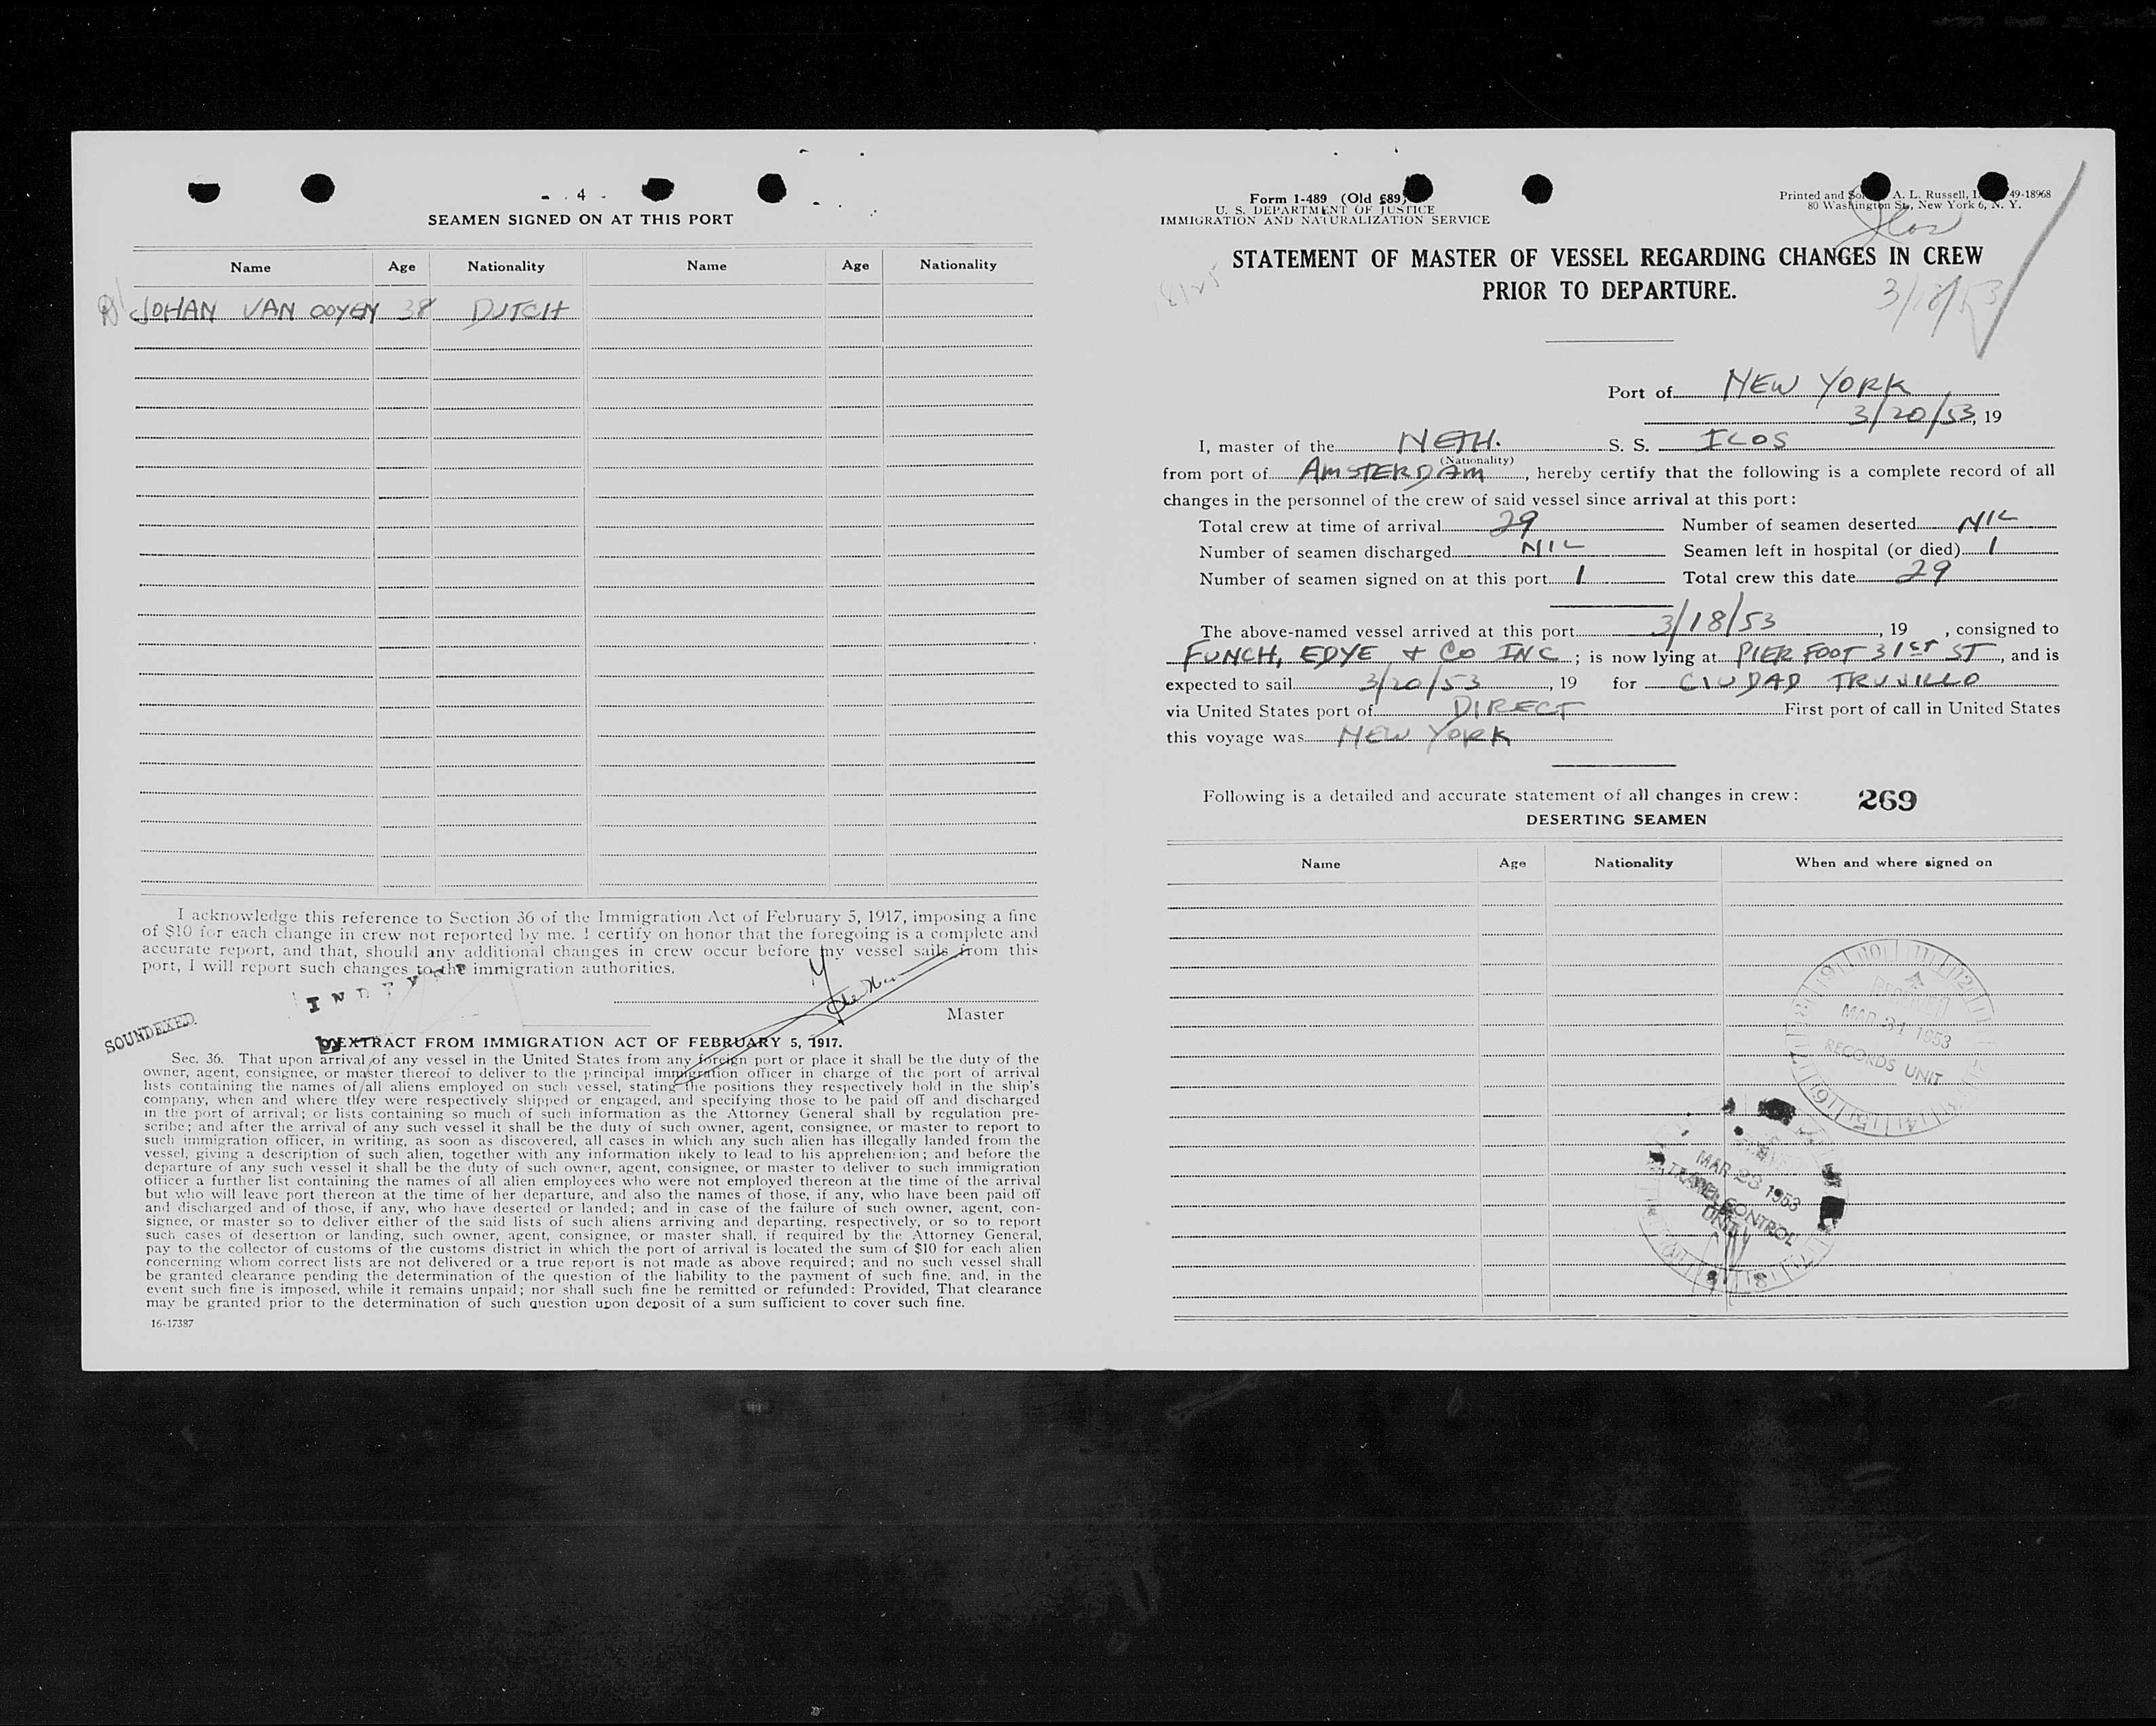 4
SEAMEN SIGNED ON AT THIS PORT
Name Age Nationality Name Age Nationality
JOHAN VAN OOYEN 38 DUTCH
I acknowledge this reference to Section 36 of the Immigration Act of February 5, 1917, imposing a fine
of $10 for each change in crew not reported by me. I certify on honor that the foregoing is a complete and
accurate report, and that, should any additional changes in crew occur before my vessel sails from this
port, I will report such changes to the immigration authorities.
Master
SOUNDEXED
by
EXTRACT FROM IMMIGRATION ACT OF FEBRUARY 5, 1917.
Sec. 36. That upon arrival of any vessel in the United States from any foreign port or place it shall be the duty of the
owner, agent, consignee, or master thereof to deliver to the principal immigration officer in charge of the port of arrival
lists containing the names of all aliens employed on such vessel, stating the positions they respectively hold in the ship's
company, when and where they were respectively shipped or engaged, and specifying those to be paid off and discharged
in the port of arrival; or lists containing so much of such information as the Attorney General shall by regulation pre-
scribe; and after the arrival of any such vessel it shall be the duty of such owner, agent, consignee, or master to report to
such immigration officer, in writing, as soon as discovered, all cases in which any such alien has illegally landed from the
vessel, giving a description of such alien, together with any information likely to lead to his apprehension; and before the
departure of any such vessel it shall be the duty of such owner, agent, consignee, or master to deliver to such immigration
officer a further list containing the names of all alien employees who were not employed thereon at the time of the arrival
but who will leave port thereon at the time of her departure, and also the names of those, if any, who have been paid off
and discharged and of those, if any, who have deserted or landed; and in case of the failure of such owner, agent, con-
signee, or master so to deliver either of the said lists of such aliens arriving and departing, respectively, or so to report
such cases of desertion or landing, such owner, agent, consignee, or master shall, if required by the Attorney General,
pay to the collector of customs of the customs district in which the port of arrival is located the sum of $10 for each alien
concerning whom correct lists are not delivered or a true report is not made as above required; and no such vessel shall
be granted clearance pending the determination of the question of the liability to the payment of such fine, and, in the
event such fine is imposed, while it remains unpaid; nor shall such fine be remitted or refunded: Provided, That clearance
may be granted prior to the determination of such question upon deposit of a sum sufficient to cover such fine.
16-17387
Form 1-489 (Old 689)
U. S. DEPARTMENT OF JUSTICE
IMMIGRATION AND NATURALIZATION SERVICE
Printed and A. L. Russell, 49-18968
80 Washington St., New York 6, N. Y.
Ilos
3/18/53
STATEMENT OF MASTER OF VESSEL REGARDING CHANGES IN CREW
PRIOR TO DEPARTURE.
Port of NEW YORK
3/20/53, 19
I, master of the NETH. S. S. ILOS
(Nationality)
from port of AMSTERDAM, hereby certify that the following is a complete record of all
changes in the personnel of the crew of said vessel since arrival at this port:
Total crew at time of arrival 29 Number of seamen deserted NIL
Number of seamen discharged NIL Seamen left in hospital (or died) 1
Number of seamen signed on at this port 1 Total crew this date 29
The above-named vessel arrived at this port 3/18/53, 19 , consigned to
FUNCH, EDYE + CO INC; is now lying at PIER FOOT 31ST ST, and is
expected to sail 3/20/53, 19 for CIUDAD TRUJILLO
via United States port of DIRECT First port of call in United States
this voyage was NEW YORK
Following is a detailed and accurate statement of all changes in crew: 269
DESERTING SEAMEN
Name Age Nationality When and where signed on
RECEIVED
MAR 31 1953
RECORDS UNIT
MAR 23 1953
TRAVEL CONTROL
UNIT